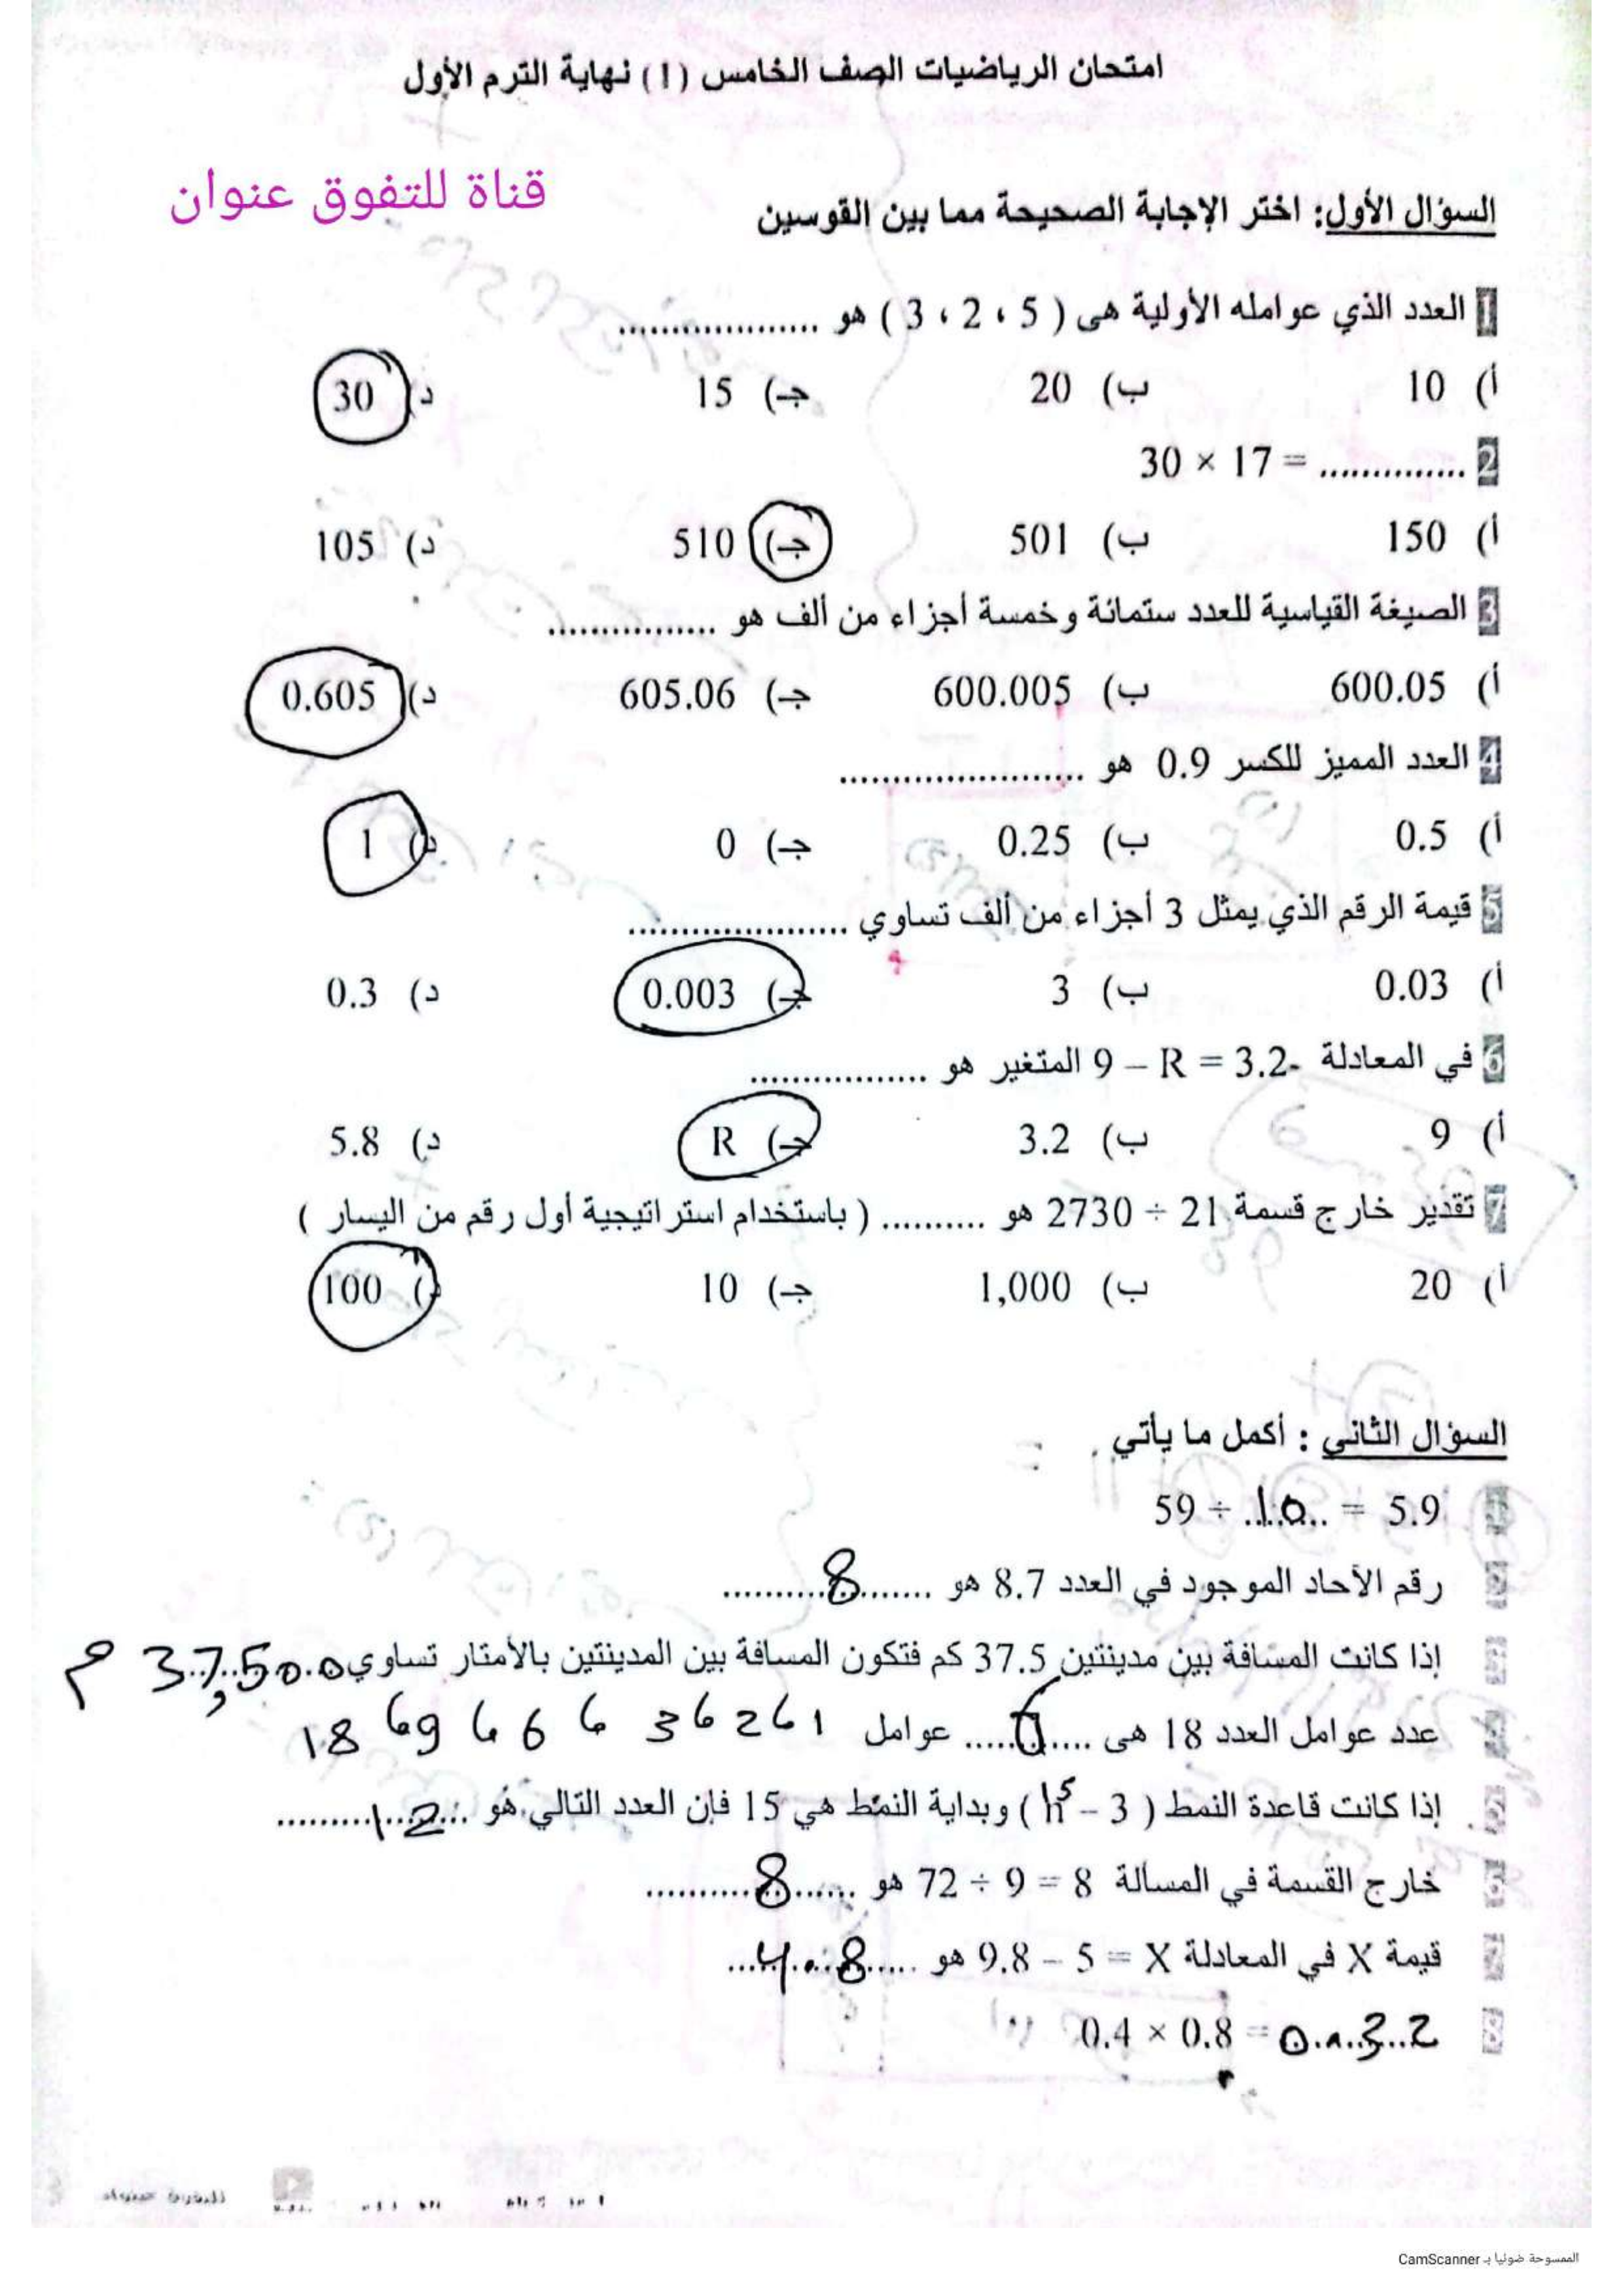 امتحان الرياضيات الصف الخامس (1) نهاية الترم الأول
قناة للتفوق عنوان
السؤال الأول: اختر الإجابة الصحيحة مما بين القوسين
1 العدد الذي عوامله الأولية هى ( 5 ، 2 ، 3 ) هو ..................
أ) 10 ب) 20 جـ) 15 د) 30
2 30 × 17 = ..............
أ) 150 ب) 501 جـ) 510 د) 105
3 الصيغة القياسية للعدد ستمائة وخمسة أجزاء من ألف هو ................
أ) 600.05 ب) 600.005 جـ) 605.06 د) 0.605
4 العدد المميز للكسر 0.9 هو .......................
أ) 0.5 ب) 0.25 جـ) 0 د) 1
5 قيمة الرقم الذي يمثل 3 أجزاء من ألف تساوي .....................
أ) 0.03 ب) 3 جـ) 0.003 د) 0.3
6 في المعادلة 9 – R = 3.2 المتغير هو .................
أ) 9 ب) 3.2 جـ) R د) 5.8
7 تقدير خارج قسمة 21 ÷ 2730 هو .......... ( باستخدام استراتيجية أول رقم من اليسار )
أ) 20 ب) 1,000 جـ) 10 د) 100
السؤال الثاني : أكمل ما يأتي
59 ÷ 10 = 5.9
رقم الآحاد الموجود في العدد 8.7 هو 8
إذا كانت المسافة بين مدينتين 37.5 كم فتكون المسافة بين المدينتين بالأمتار تساوي 37,500 م
عدد عوامل العدد 18 هى 6 عوامل 1 6 2 6 3 6 6 6 9 6 18
إذا كانت قاعدة النمط ( n – 3 ) وبداية النمط هي 15 فإن العدد التالي هو 12
خارج القسمة في المسألة 72 ÷ 9 = 8 هو 8
قيمة X في المعادلة 9.8 – 5 = X هو 4.8
0.4 × 0.8 = 0.32
الممسوحة ضوئيا بـ CamScanner